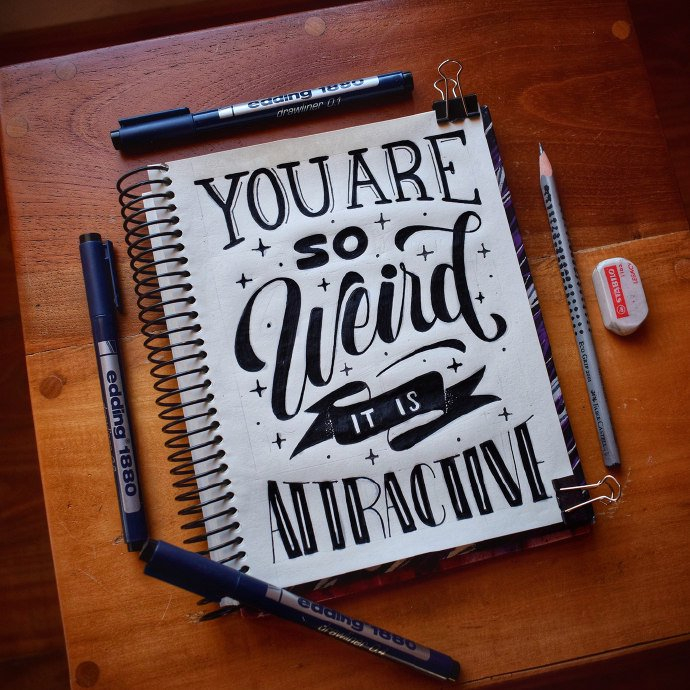 edding 1880
drawliner 0.1
YOU ARE
SO
Weird
IT IS
ATTRACTIVE
edding 1880
STABILO
edding 1880
drawliner 0.4